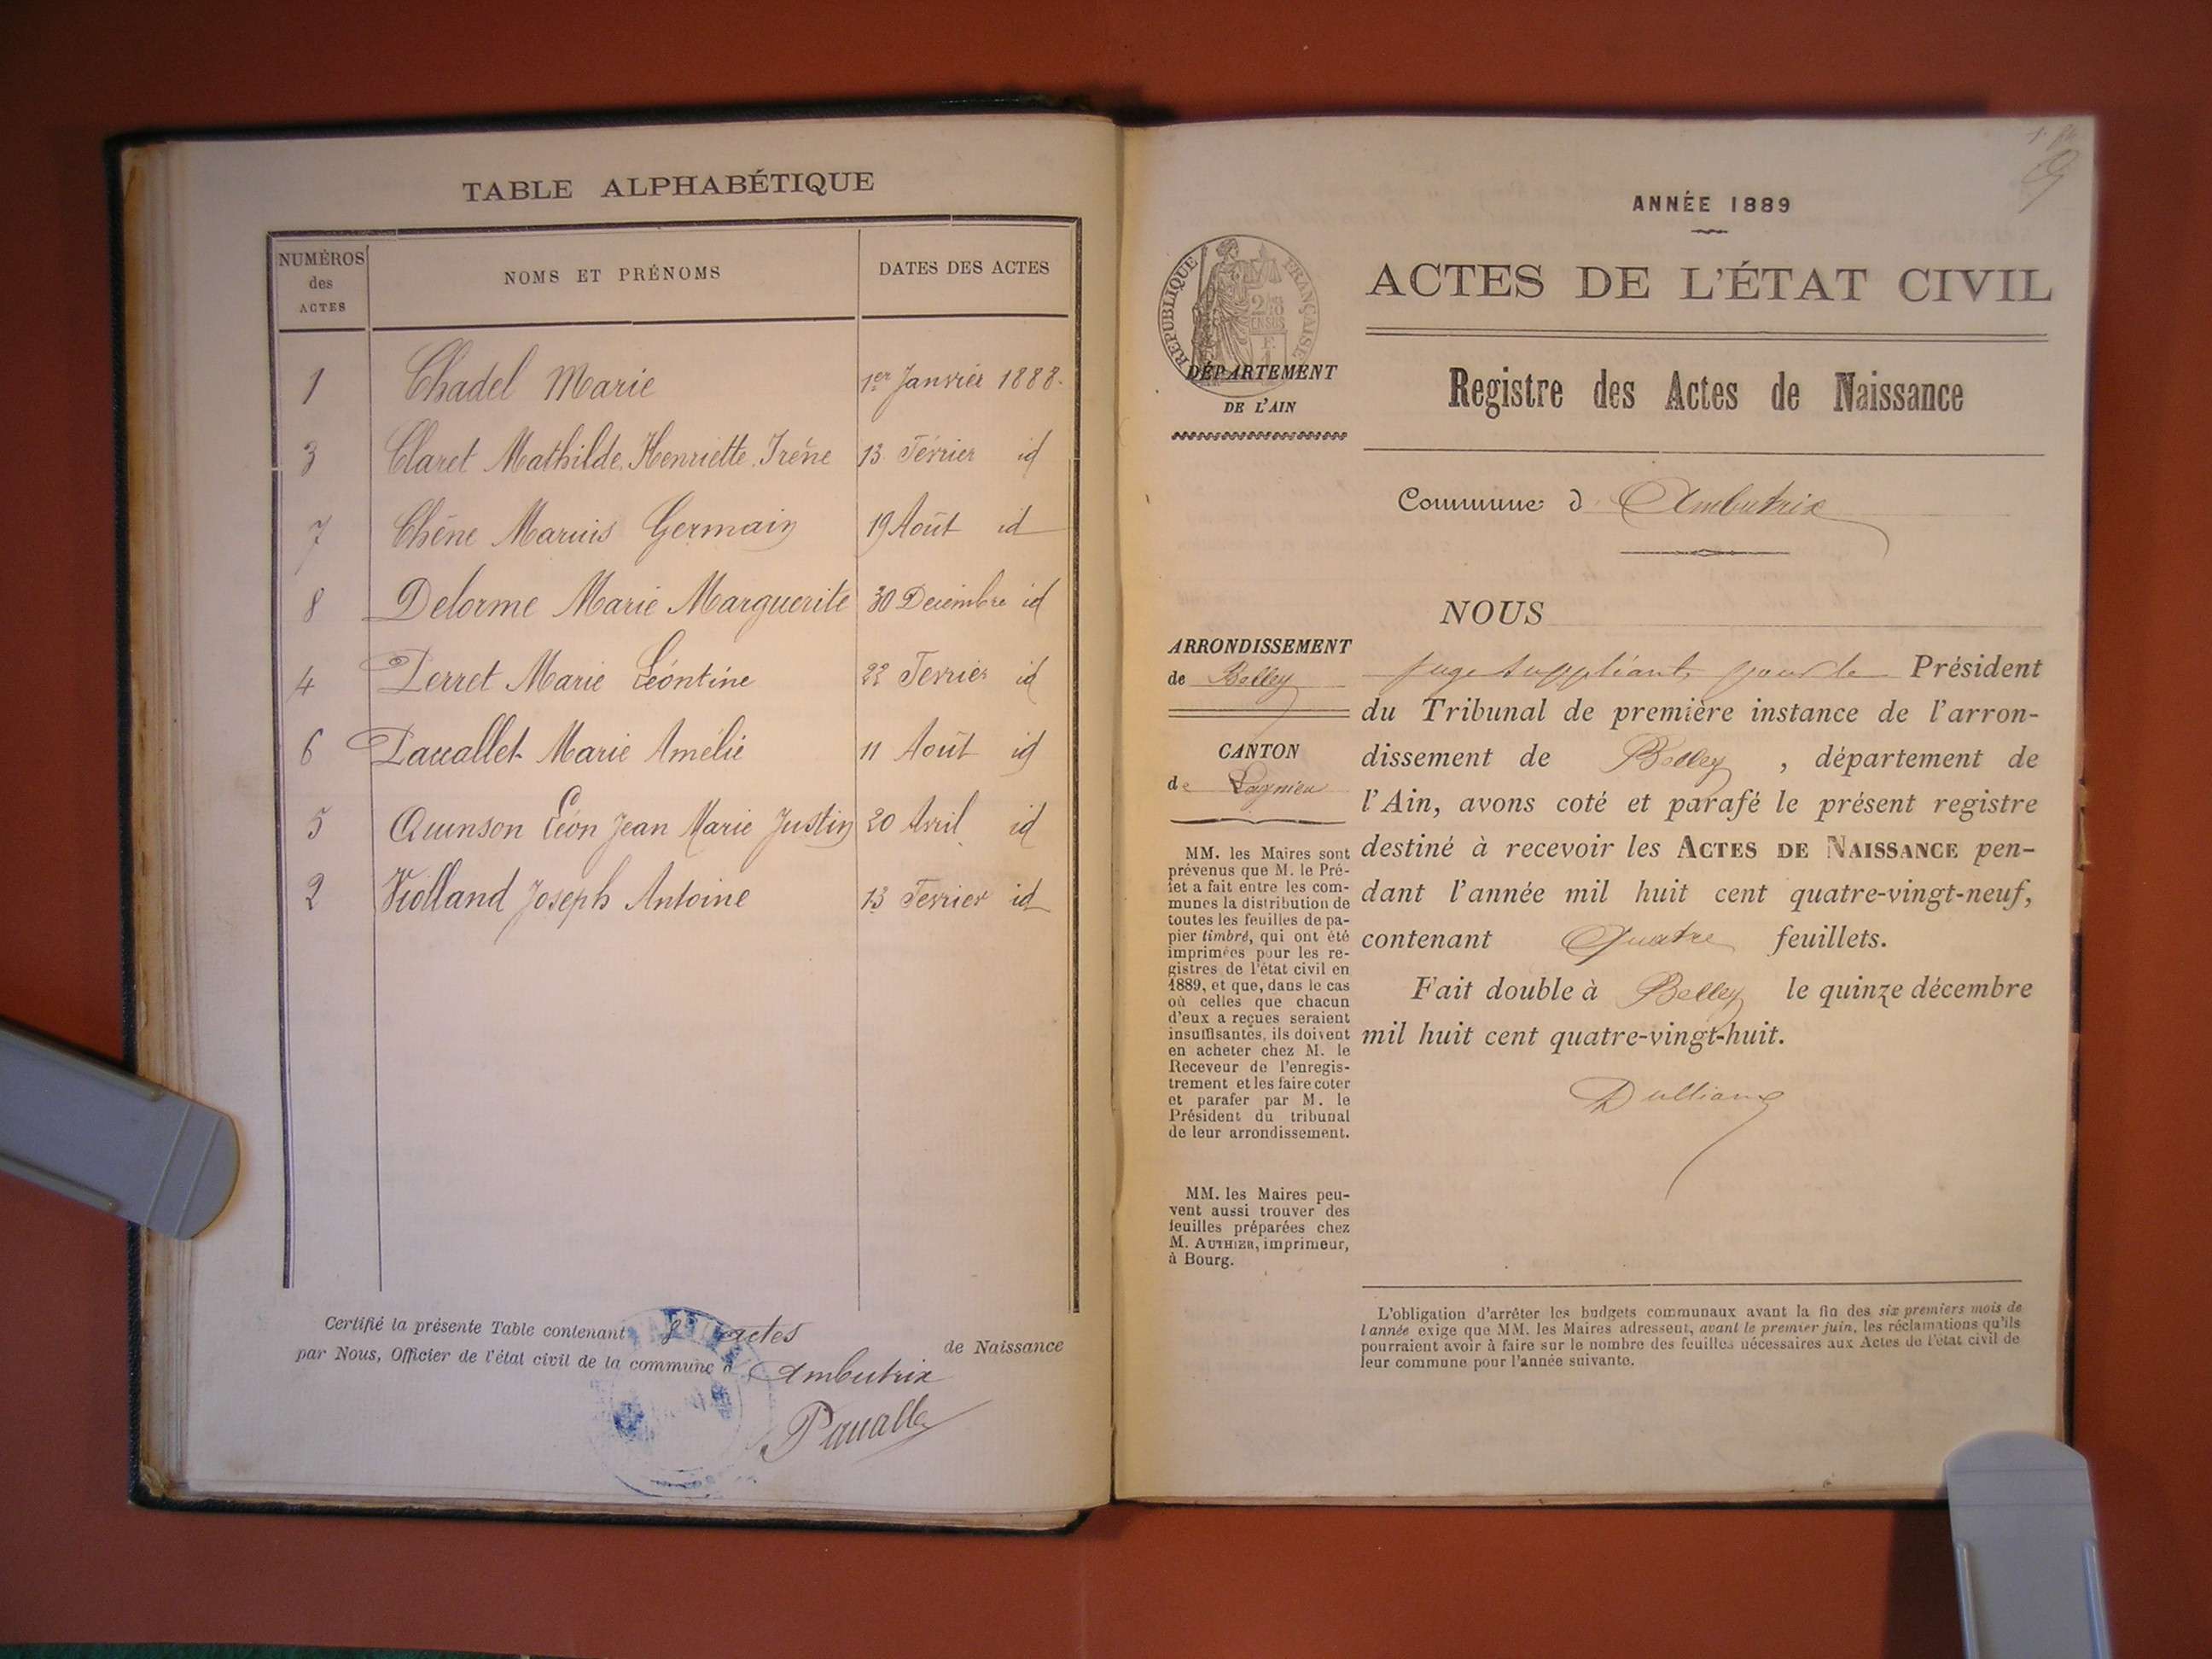 TABLE ALPHABÉTIQUE
NUMÉROS des ACTES
NOMS ET PRÉNOMS
DATES DES ACTES
1 Chadel Marie 1er Janvier 1888.
3 Claret Mathilde, Henriette, Irène 13 Février id
7 Chêne Marius Germain 19 Août id
8 Delorme Marie Marguerite 30 Decembre id
4 Perret Marie Léontine 22 Fevrier id
6 Pauallet Marie Amélie 11 Août id
5 Quinson Léon Jean Marie Justin 20 Avril id
2 Violland Joseph Antoine 13 Fevrier id
Certifié la présente Table contenant 8 actes de Naissance
par Nous, Officier de l'état civil de la commune d Ambutrix
ANNÉE 1889
ACTES DE L'ÉTAT CIVIL
RÉPUBLIQUE FRANÇAISE
DÉPARTEMENT
DE L'AIN
Registre des Actes de Naissance
Commune d Ambutrix
NOUS
ARRONDISSEMENT
de Belley
CANTON
de Lagnieu
MM. les Maires sont
prévenus que M. le Pré-
fet a fait entre les com-
munes la distribution de
toutes les feuilles de pa-
pier timbré, qui ont été
imprimées pour les re-
gistres de l'état civil en
1889, et que, dans le cas
où celles que chacun
d'eux a reçues seraient
insuffisantes, ils doivent
en acheter chez M. le
Receveur de l'enregis-
trement et les faire coter
et parafer par M. le
Président du tribunal
de leur arrondissement.
MM. les Maires peu-
vent aussi trouver des
feuilles préparées chez
M. AUTHIER, imprimeur,
à Bourg.
juge suppléant, pour le Président
du Tribunal de première instance de l'arron-
dissement de Belley , département de
l'Ain, avons coté et parafé le présent registre
destiné à recevoir les ACTES DE NAISSANCE pen-
dant l'année mil huit cent quatre-vingt-neuf,
contenant Quatre feuillets.
Fait double à Belley le quinze décembre
mil huit cent quatre-vingt-huit.
Dulliand
L'obligation d'arrêter les budgets communaux avant la fin des six premiers mois de
l'année exige que MM. les Maires adressent, avant le premier juin, les réclamations qu'ils
pourraient avoir à faire sur le nombre des feuilles nécessaires aux Actes de l'état civil de
leur commune pour l'année suivante.